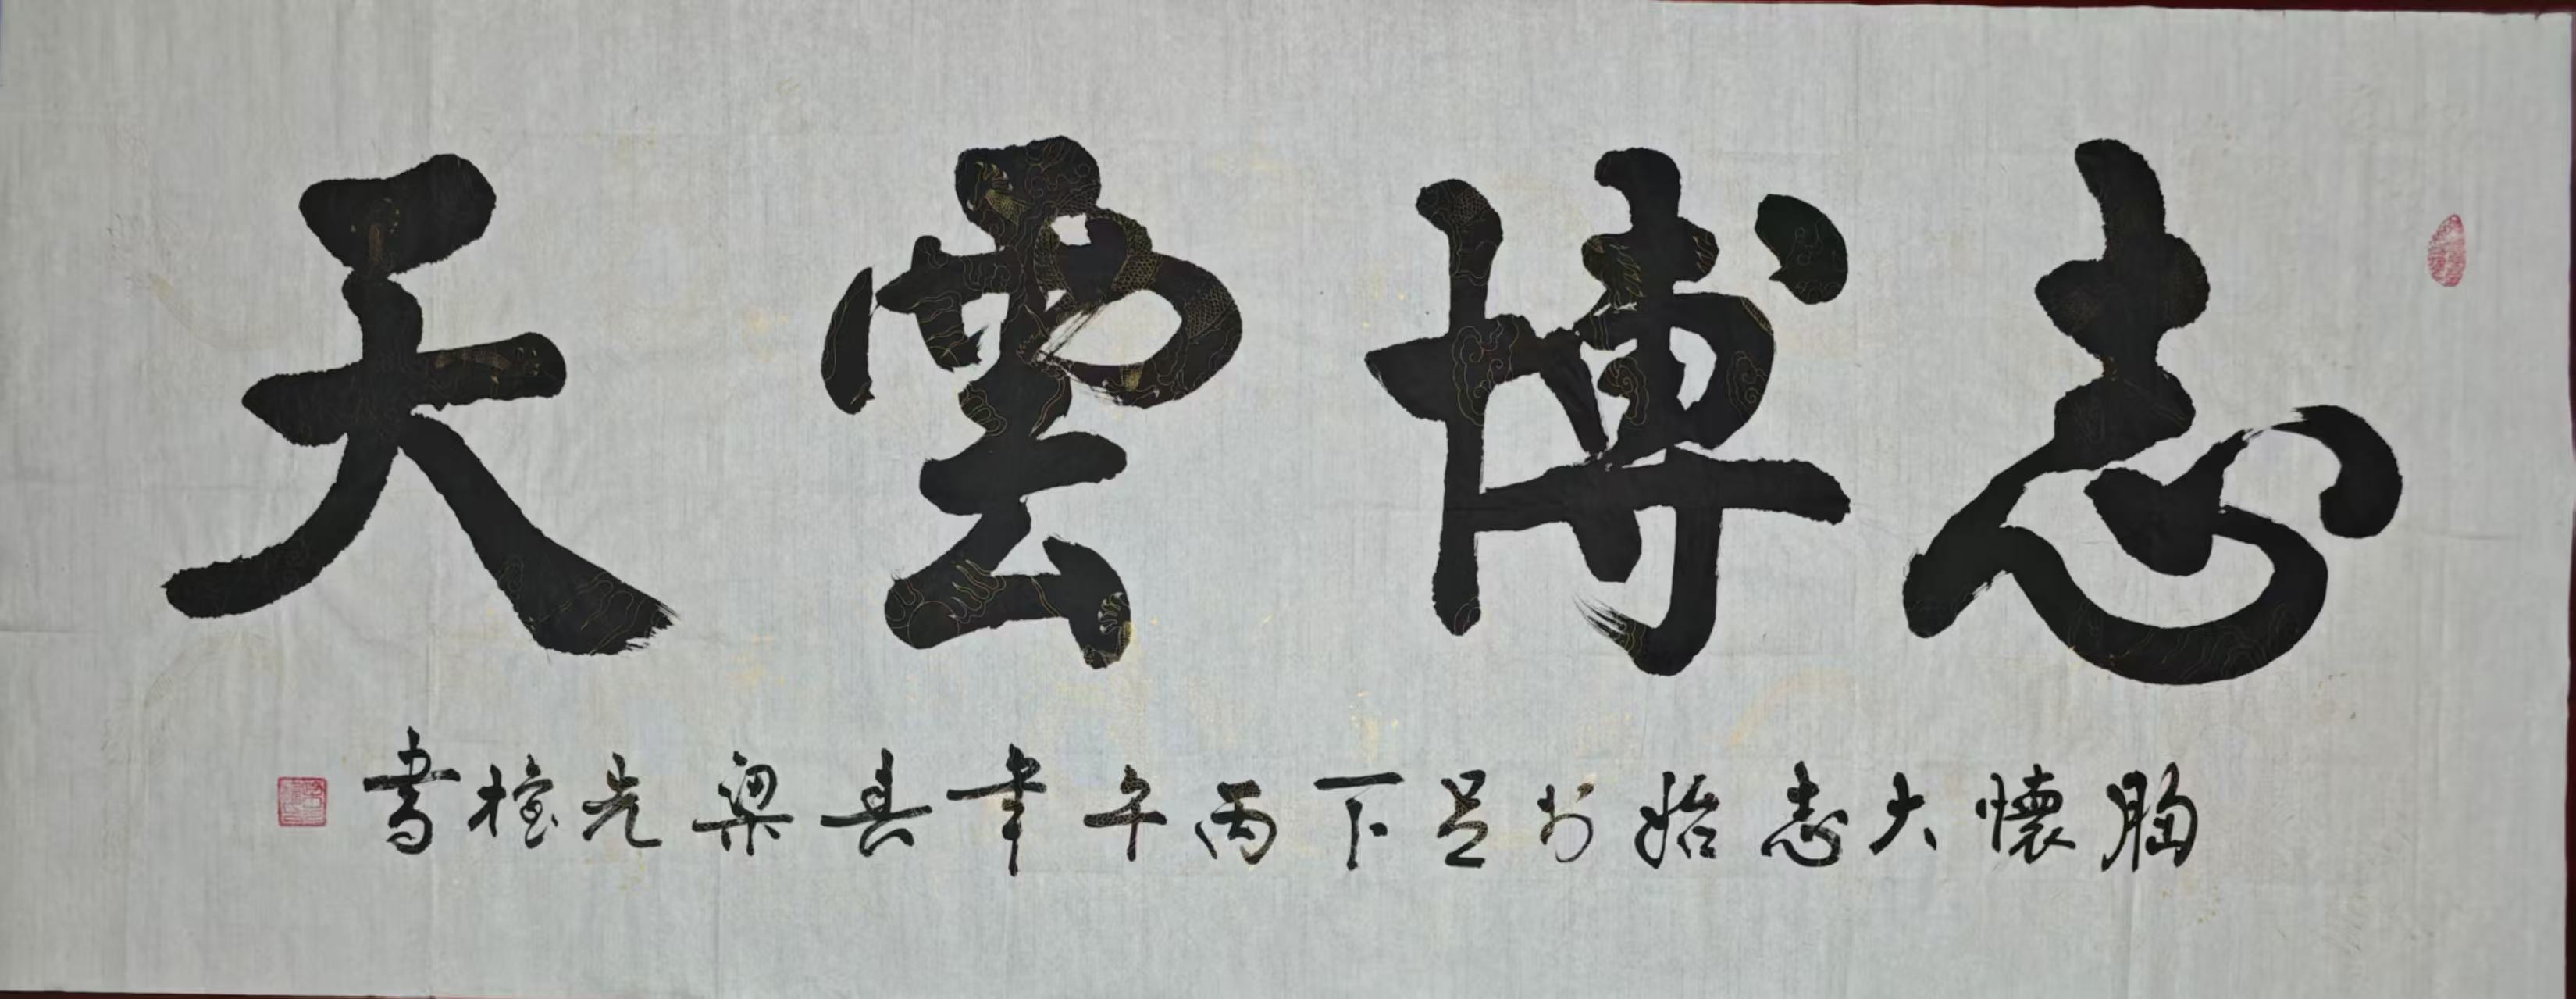 志博雲天
胸懷大志始於足下丙午年梁先書